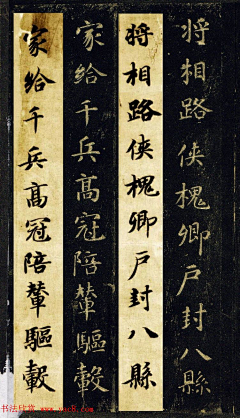 将相路侠槐卿户封八縣
将相路侠槐卿户封八縣
家给千兵高冠陪輦驅轂
家给千兵高冠陪輦驅轂
书法欣赏
www.yac8.com